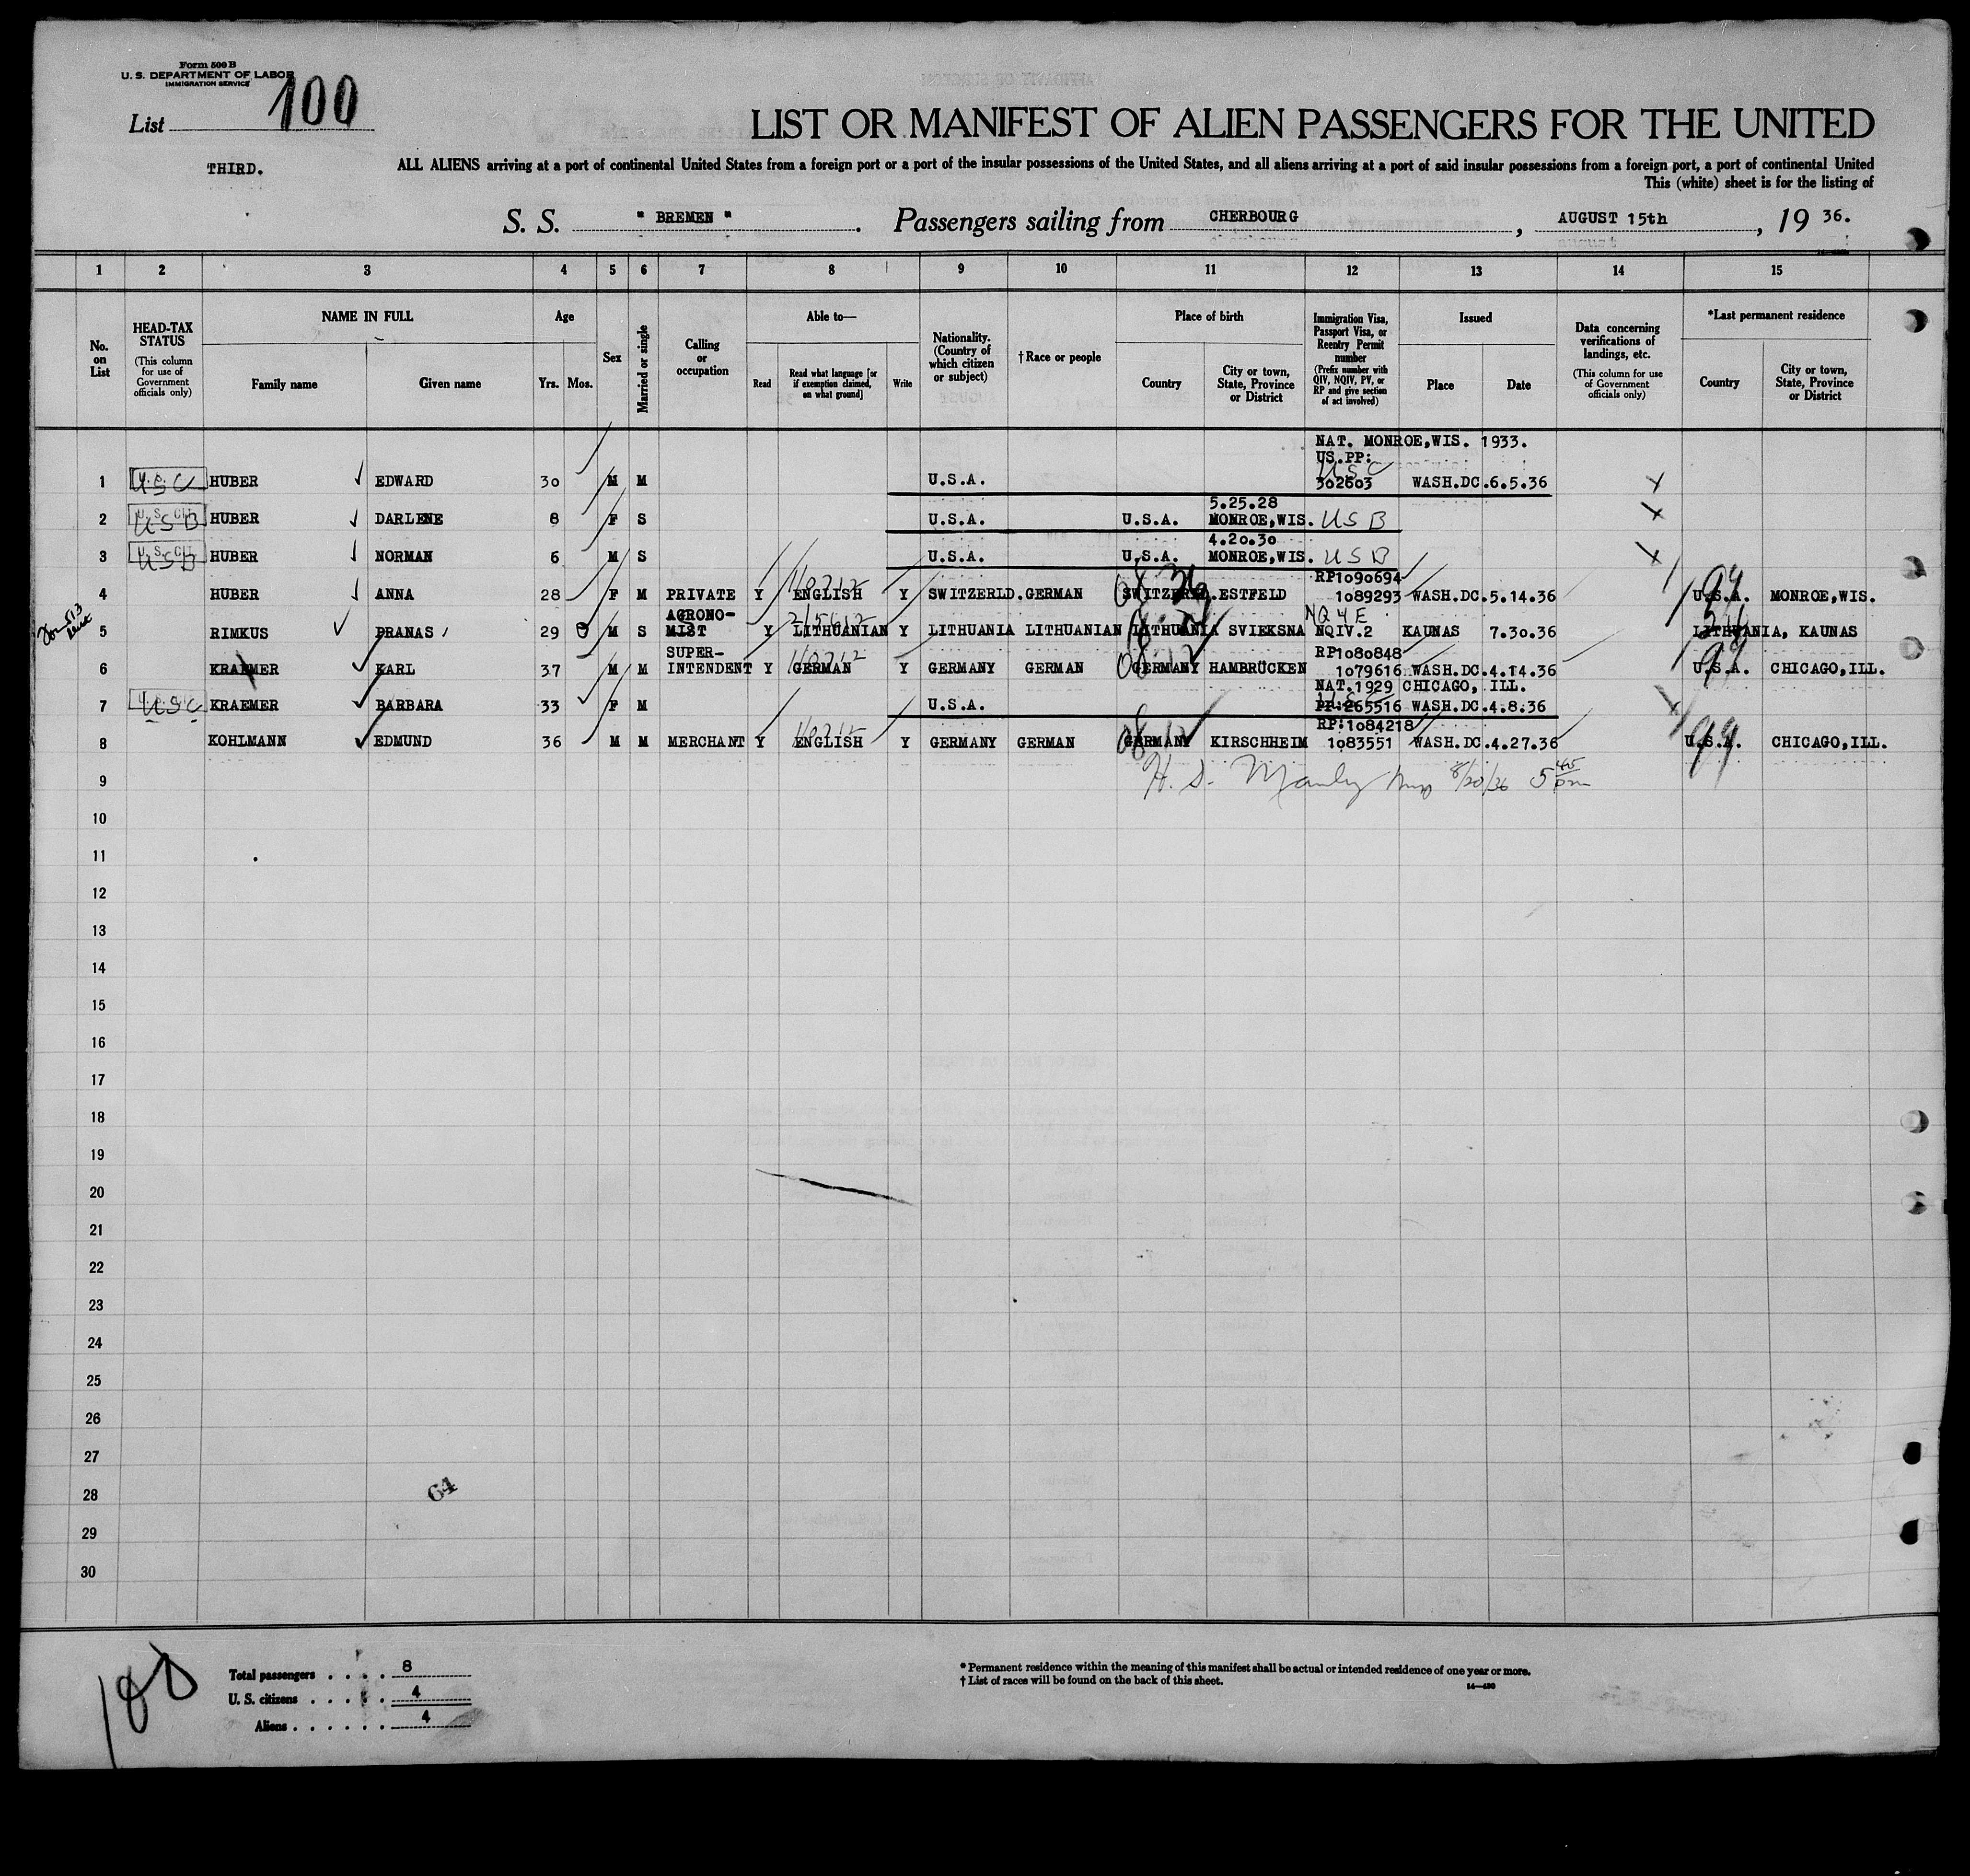 Form 500 B
U. S. DEPARTMENT OF LABOR
IMMIGRATION SERVICE
List 100
LIST OR MANIFEST OF ALIEN PASSENGERS FOR THE UNITED
THIRD.
ALL ALIENS arriving at a port of continental United States from a foreign port or a port of the insular possessions of the United States, and all aliens arriving at a port of said insular possessions from a foreign port, a port of continental United
This (white) sheet is for the listing of
S. S. " BREMEN ". Passengers sailing from CHERBOURG, AUGUST 15th, 19 36.
1 2 3 4 5 6 7 8 9 10 11 12 13 14 15
No. on List
HEAD-TAX STATUS (This column for use of Government officials only)
NAME IN FULL
Family name
Given name
Age
Yrs. Mos.
Sex
Married or single
Calling or occupation
Able to—
Read
Read what language [or if exemption claimed, on what ground]
Write
Nationality. (Country of which citizen or subject)
†Race or people
Place of birth
Country
City or town, State, Province or District
Immigration Visa, Passport Visa, or Reentry Permit number (Prefix number with QIV, NQIV, PV, or RP and give section of act involved)
Issued
Place
Date
Data concerning verifications of landings, etc. (This column for use of Government officials only)
*Last permanent residence
Country
City or town, State, Province or District
NAT. MONROE,WIS. 1933.
US.PP:
USC
1 USC HUBER EDWARD 30 M M U.S.A. 302603 WASH.DC.6.5.36
5.25.28
2 U. S. CIT USB HUBER DARLENE 8 F S U.S.A. U.S.A. MONROE,WIS. USB
4.20.30
3 U. S. CIT USB HUBER NORMAN 6 M S U.S.A. U.S.A. MONROE,WIS. USB
RP1090694
4 HUBER ANNA 28 F M PRIVATE Y ENGLISH Y SWITZERLD. GERMAN SWITZERLD. ESTFELD 1089293 WASH.DC.5.14.36 U.S.A. MONROE,WIS.
AGRONO- NQ4E
5 RIMKUS PRANAS 29 M S MIST Y LITHUANIAN Y LITHUANIA LITHUANIAN LITHUANIA SVIEKSNA NQIV.2 KAUNAS 7.30.36 LITHUANIA, KAUNAS
SUPER- RP1080848
6 KRAEMER KARL 37 M M INTENDENT Y GERMAN Y GERMANY GERMAN GERMANY HAMBRÜCKEN 1079616 WASH.DC.4.14.36 U.S.A. CHICAGO,ILL.
NAT.1929 CHICAGO, ILL.
7 USC KRAEMER BARBARA 33 F M U.S.A. PP:265516 WASH.DC.4.8.36
RP:1084218
8 KOHLMANN EDMUND 36 M M MERCHANT Y ENGLISH Y GERMANY GERMAN GERMANY KIRSCHHEIM 1083551 WASH.DC.4.27.36 U.S.A. CHICAGO,ILL.
9 H. S. Manley 8/20/36 5 45 pm
10
11
12
13
14
15
16
17
18
19
20
21
22
23
24
25
26
27
28
29
30
64
100
Total passengers . . . . 8
U. S. citizens . . . . . 4
Aliens . . . . . . 4
* Permanent residence within the meaning of this manifest shall be actual or intended residence of one year or more.
† List of races will be found on the back of this sheet.
14—430